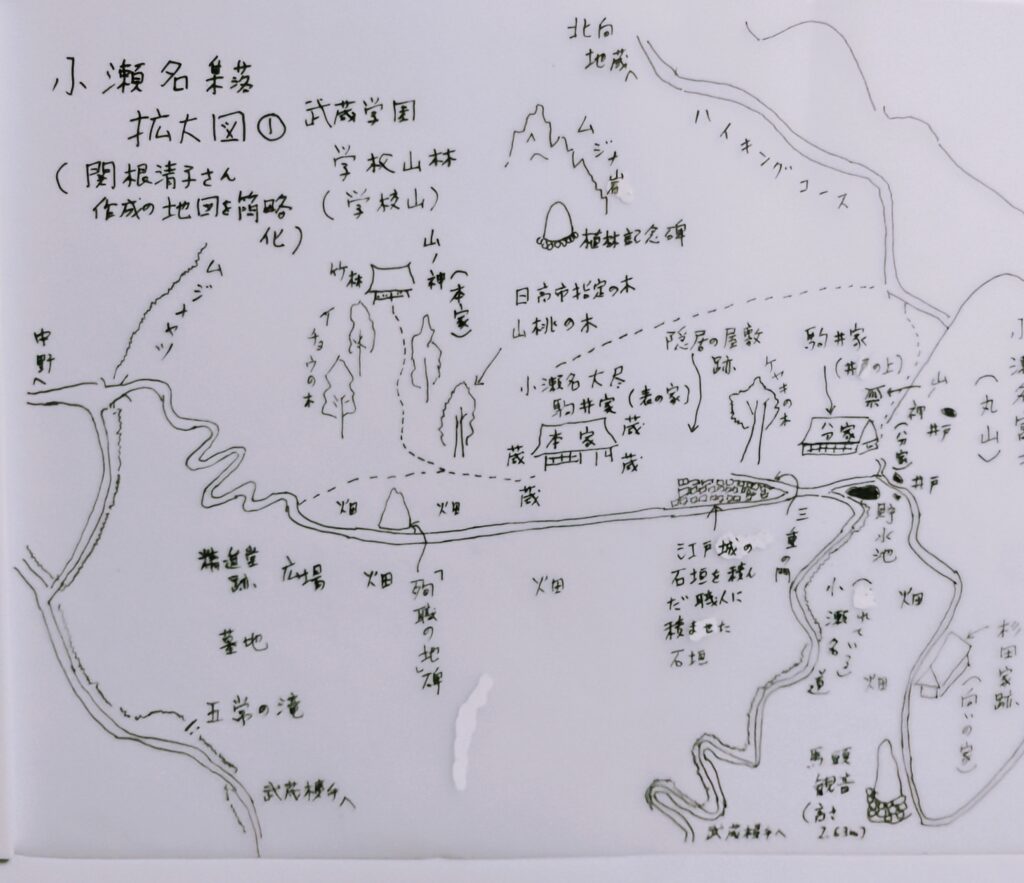 小瀬名集落
拡大図①
(関根清子さん
作成の地図を簡略
化)
武蔵学園
学校山林
(学校山)
北向
地蔵へ
ハイキングコース
ムジナ岩
植林記念碑
山ノ神
(本家)
竹林
イチョウの木
日高市指定の木
山桃の木
ムジナヤツ
中野へ
小瀬名大尽
駒井家(表の家)
本家
蔵
蔵
蔵
蔵
隠居の屋敷
跡
ケヤキの木
駒井家
(井戸の上)
分家
山ノ神
(分家)
井戸
井戸
(丸山)
貯水池
三重の門
畑
畑
畑
畑
畑
畑
江戸城の
石垣を積ん
だ職人に
積ませた
石垣
精進堂
跡
広場
「殉職の地」碑
墓地
五常の滝
武蔵横手へ
小瀬名道
杉田家跡
(向いの家)
馬頭
観音
(高さ
2.63m)
武蔵横手へ